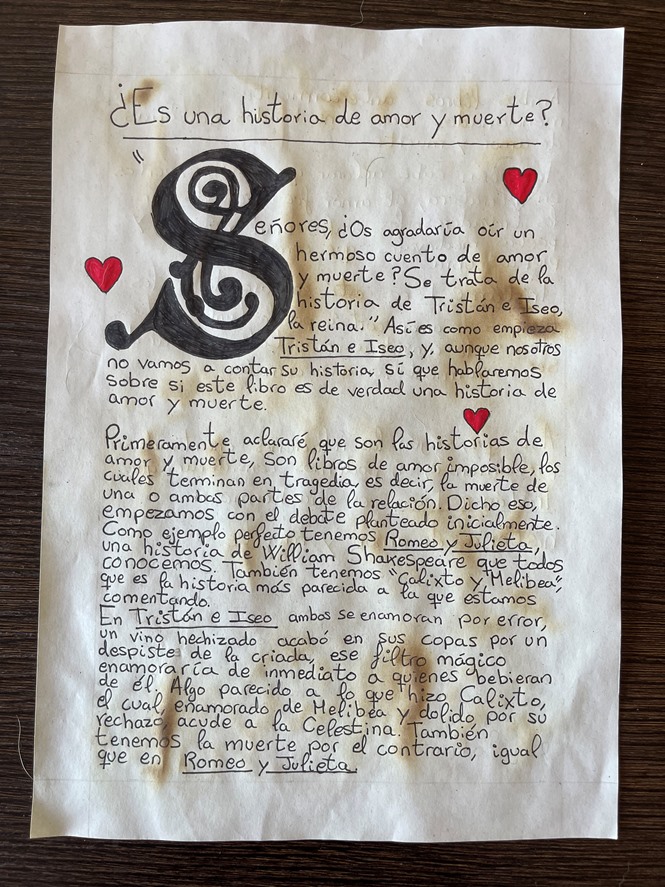 ¿Es una historia de amor y muerte?
"Señores, ¿Os agradaría oír un
hermoso cuento de amor
y muerte? Se trata de la
historia de Tristán e Iseo,
la reina." Así es como empieza
Tristán e Iseo, y, aunque nosotros
no vamos a contar su historia, sí que hablaremos
sobre si este libro es de verdad una historia de
amor y muerte.
Primeramente, aclararé que son las historias de
amor y muerte, son libros de amor imposible, los
cuales terminan en tragedia, es decir, la muerte de
una o ambas partes de la relación. Dicho eso,
empezamos con el debate planteado inicialmente.
Como ejemplo perfecto tenemos Romeo y Julieta,
una historia de William Shakespeare que todos
conocemos. También tenemos "Calixto y Melibea",
que es la historia más parecida a la que estamos
comentando.
En Tristán e Iseo ambos se enamoran por error,
un vino hechizado acabó en sus copas por un
despiste de la criada, ese filtro mágico
enamoraría de inmediato a quienes bebieran
de él. Algo parecido a lo que hizo Calixto,
el cual, enamorado de Melibea y dolido por su
rechazo, acude a la Celestina. También
tenemos la muerte por el contrario, igual
que en Romeo y Julieta.